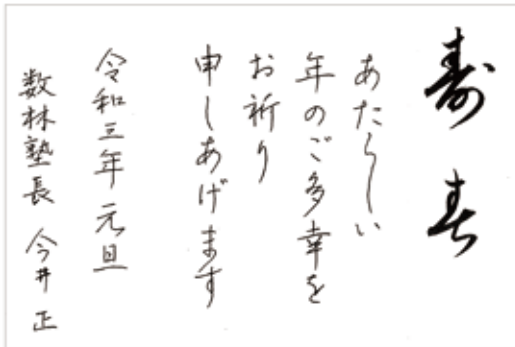 寿春
あたらしい
年のご多幸を
お祈り
申しあげます
令和三年 元旦
数林塾長 今井 正